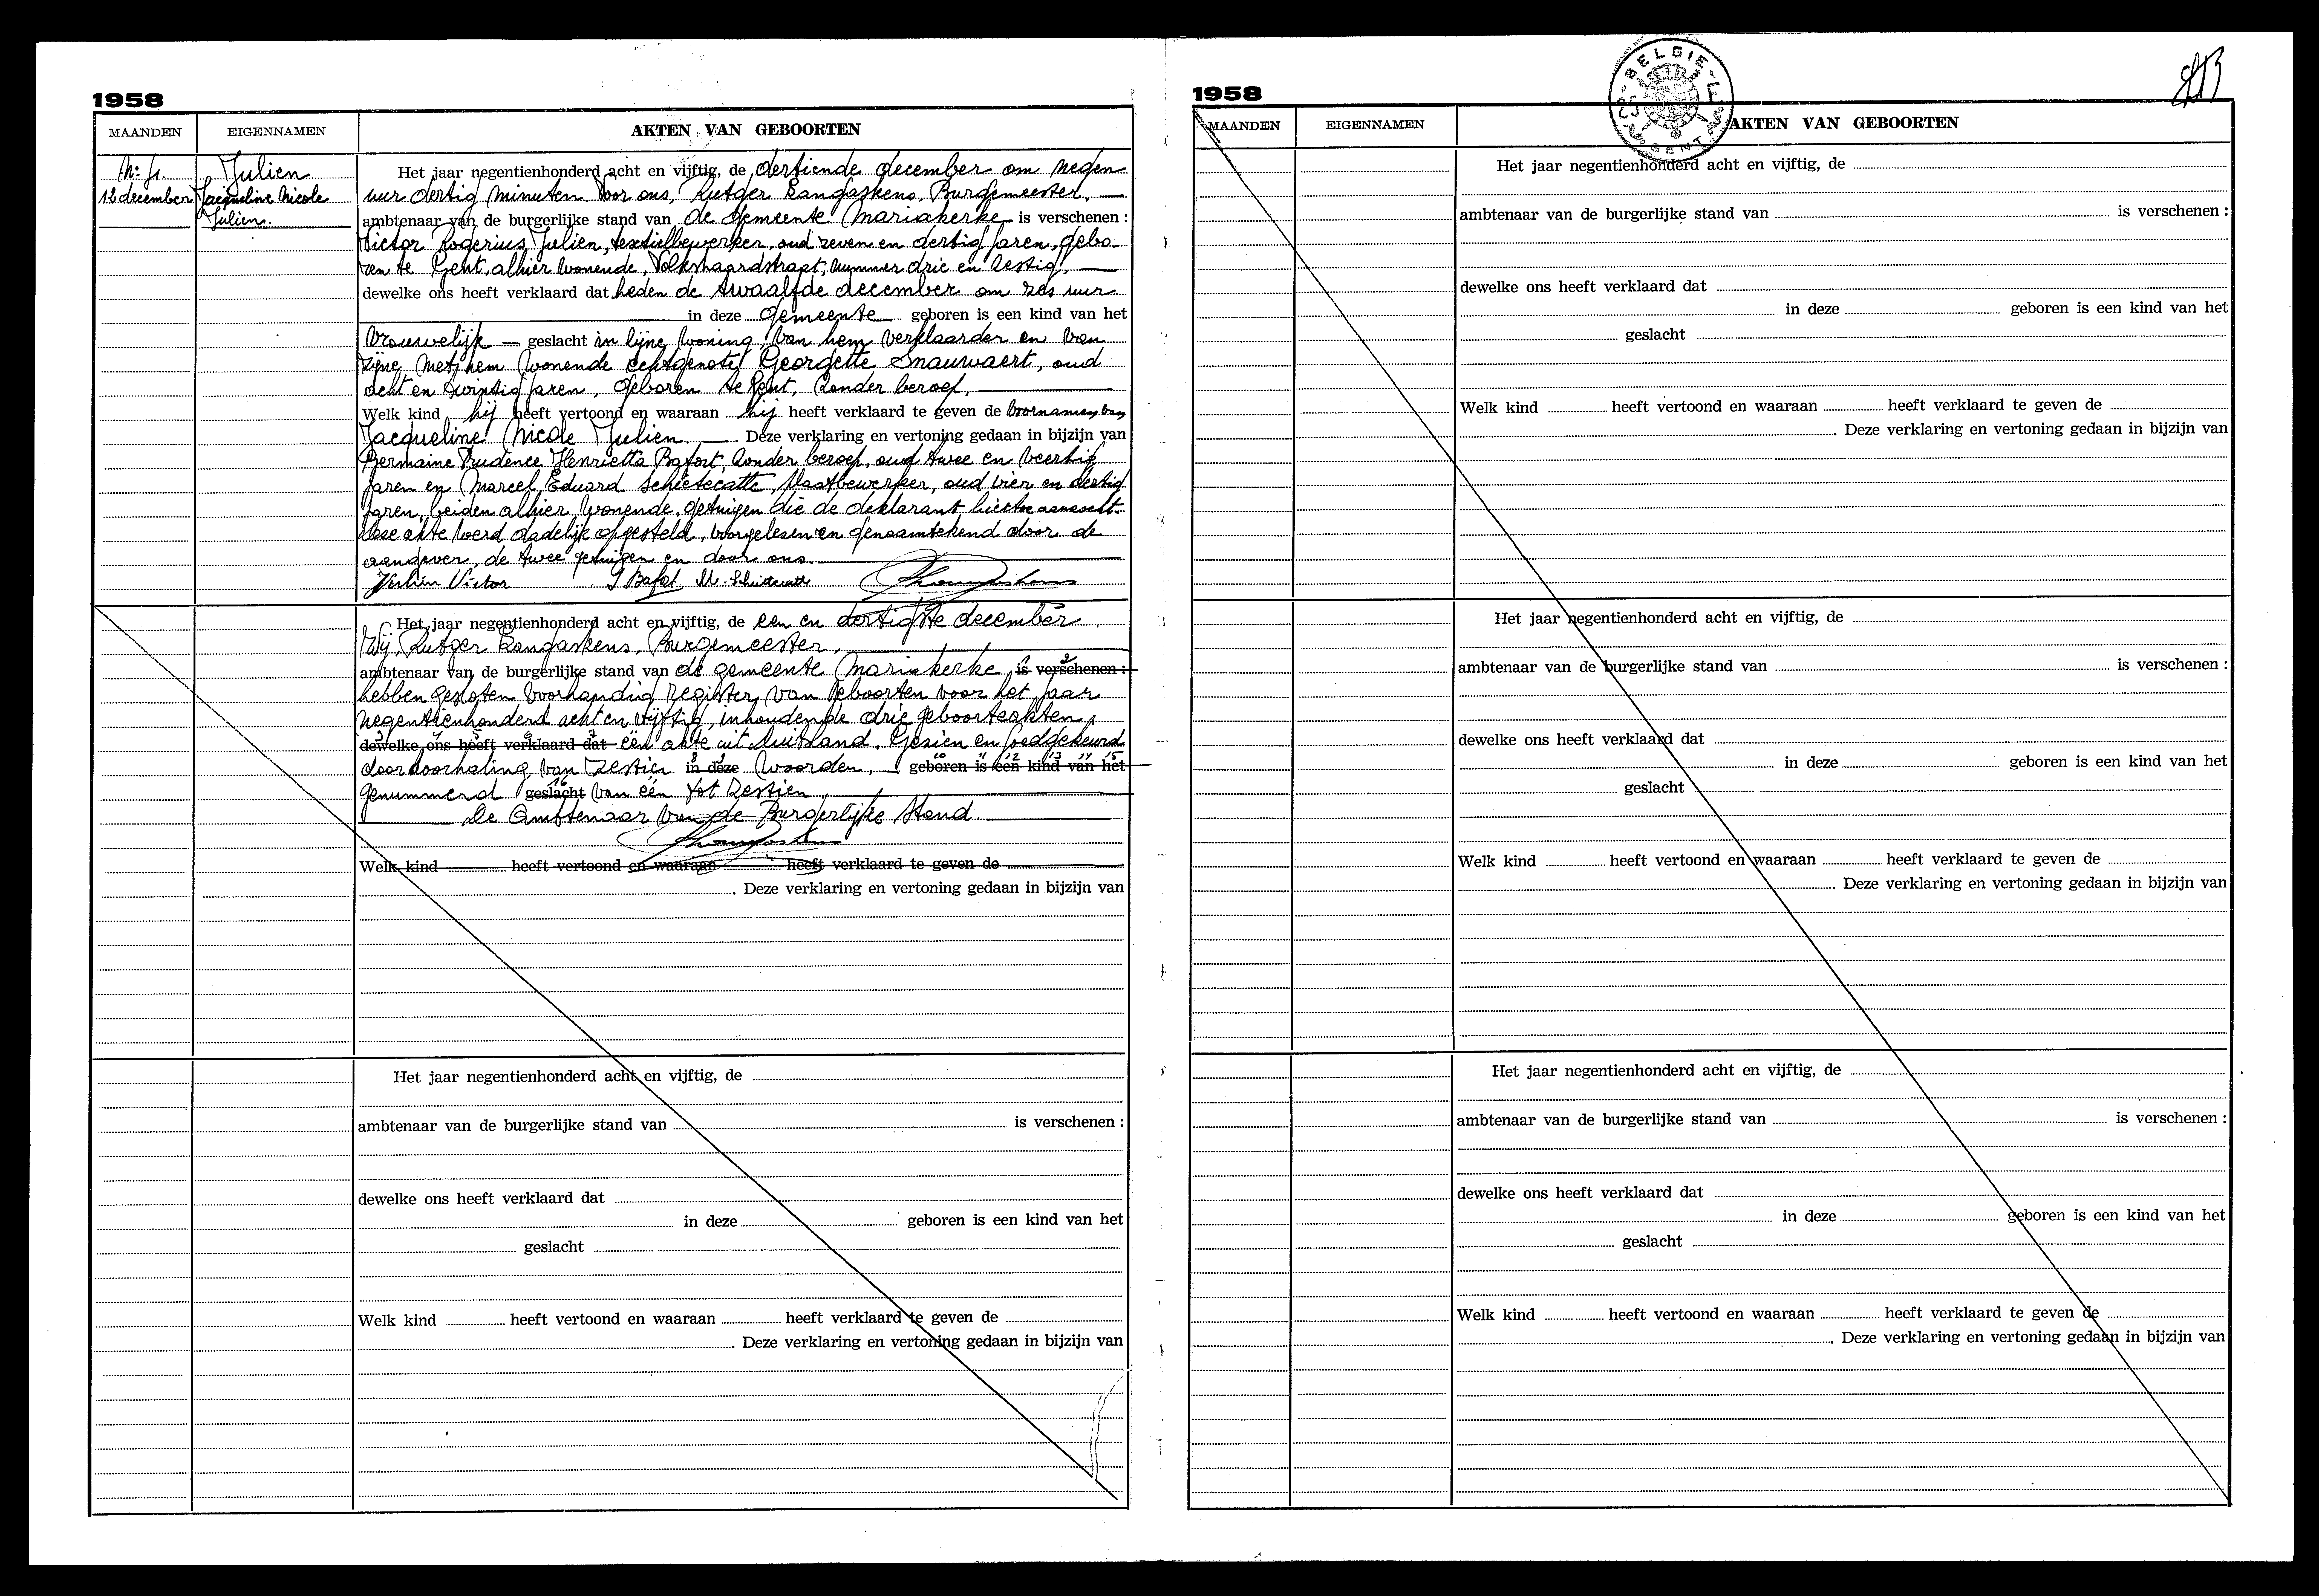 1958
MAANDEN EIGENNAMEN AKTEN VAN GEBOORTEN
Nr 4. Julien
12 december Jacqueline Nicole
Julien.
Het jaar negentienhonderd acht en vijftig, de dertiende december om negen
uur dertig minuten voor ons, Rutger Langaskens, Burgemeester,
ambtenaar van de burgerlijke stand van de gemeente Mariakerke is verschenen :
Victor Rogerius Julien, textielbewerker, oud zeven en dertig jaren, gebo-
ren te Gent, alhier wonende, Volkshaardstraat, nummer drie en zestig,
dewelke ons heeft verklaard dat heden de twaalfde december om zes uur
in deze gemeente geboren is een kind van het
vrouwelijk geslacht in zijne woning van hem verklaarder en van
zijne met hem wonende echtgenote Georgette Snauwaert, oud
acht en twintig jaren, geboren te Gent, zonder beroep,
Welk kind hij heeft vertoond en waaraan hij heeft verklaard te geven de voornamen van
Jacqueline Nicole Julien. Deze verklaring en vertoning gedaan in bijzijn van
Germaine Prudence Henrietta Bafort, zonder beroep, oud twee en veertig
jaren en Marcel Eduard Schietecatte, plaatbewerker, oud vier en dertig
jaren, beiden alhier wonende, getuigen die de deklarant hiertoe aanzocht.
Deze akte werd dadelijk opgesteld, voorgelezen en genaamtekend door de
aangever, de twee getuigen en door ons.
Julien Victor G Bafort M. Schietecatte
Het jaar negentienhonderd acht en vijftig, de een en dertigste december
Wij, Rutger Langaskens, Burgemeester,
ambtenaar van de burgerlijke stand van de gemeente Mariakerke, is verschenen :
hebben gesloten voorhandig register van geboorten voor het jaar
negentienhonderd acht en vijftig, inhoudende drie geboorteakten,
dewelke ons heeft verklaard dat één akte uit Duitsland. Gezien en goedgekeurd
door doorhaling van zestien in deze woorden, geboren is een kind van het
genummerd geslacht van één tot zestien,
De Ambtenaar van de Burgerlijke Stand.
Welk kind heeft vertoond en waaraan heeft verklaard te geven de
. Deze verklaring en vertoning gedaan in bijzijn van
Het jaar negentienhonderd acht en vijftig, de
ambtenaar van de burgerlijke stand van is verschenen :
dewelke ons heeft verklaard dat
in deze geboren is een kind van het
geslacht
Welk kind heeft vertoond en waaraan heeft verklaard te geven de
. Deze verklaring en vertoning gedaan in bijzijn van
1958
BELGIE
GENT
MAANDEN EIGENNAMEN AKTEN VAN GEBOORTEN
Het jaar negentienhonderd acht en vijftig, de
ambtenaar van de burgerlijke stand van is verschenen :
dewelke ons heeft verklaard dat
in deze geboren is een kind van het
geslacht
Welk kind heeft vertoond en waaraan heeft verklaard te geven de
. Deze verklaring en vertoning gedaan in bijzijn van
Het jaar negentienhonderd acht en vijftig, de
ambtenaar van de burgerlijke stand van is verschenen :
dewelke ons heeft verklaard dat
in deze geboren is een kind van het
geslacht
Welk kind heeft vertoond en waaraan heeft verklaard te geven de
. Deze verklaring en vertoning gedaan in bijzijn van
Het jaar negentienhonderd acht en vijftig, de
ambtenaar van de burgerlijke stand van is verschenen :
dewelke ons heeft verklaard dat
in deze geboren is een kind van het
geslacht
Welk kind heeft vertoond en waaraan heeft verklaard te geven de
. Deze verklaring en vertoning gedaan in bijzijn van